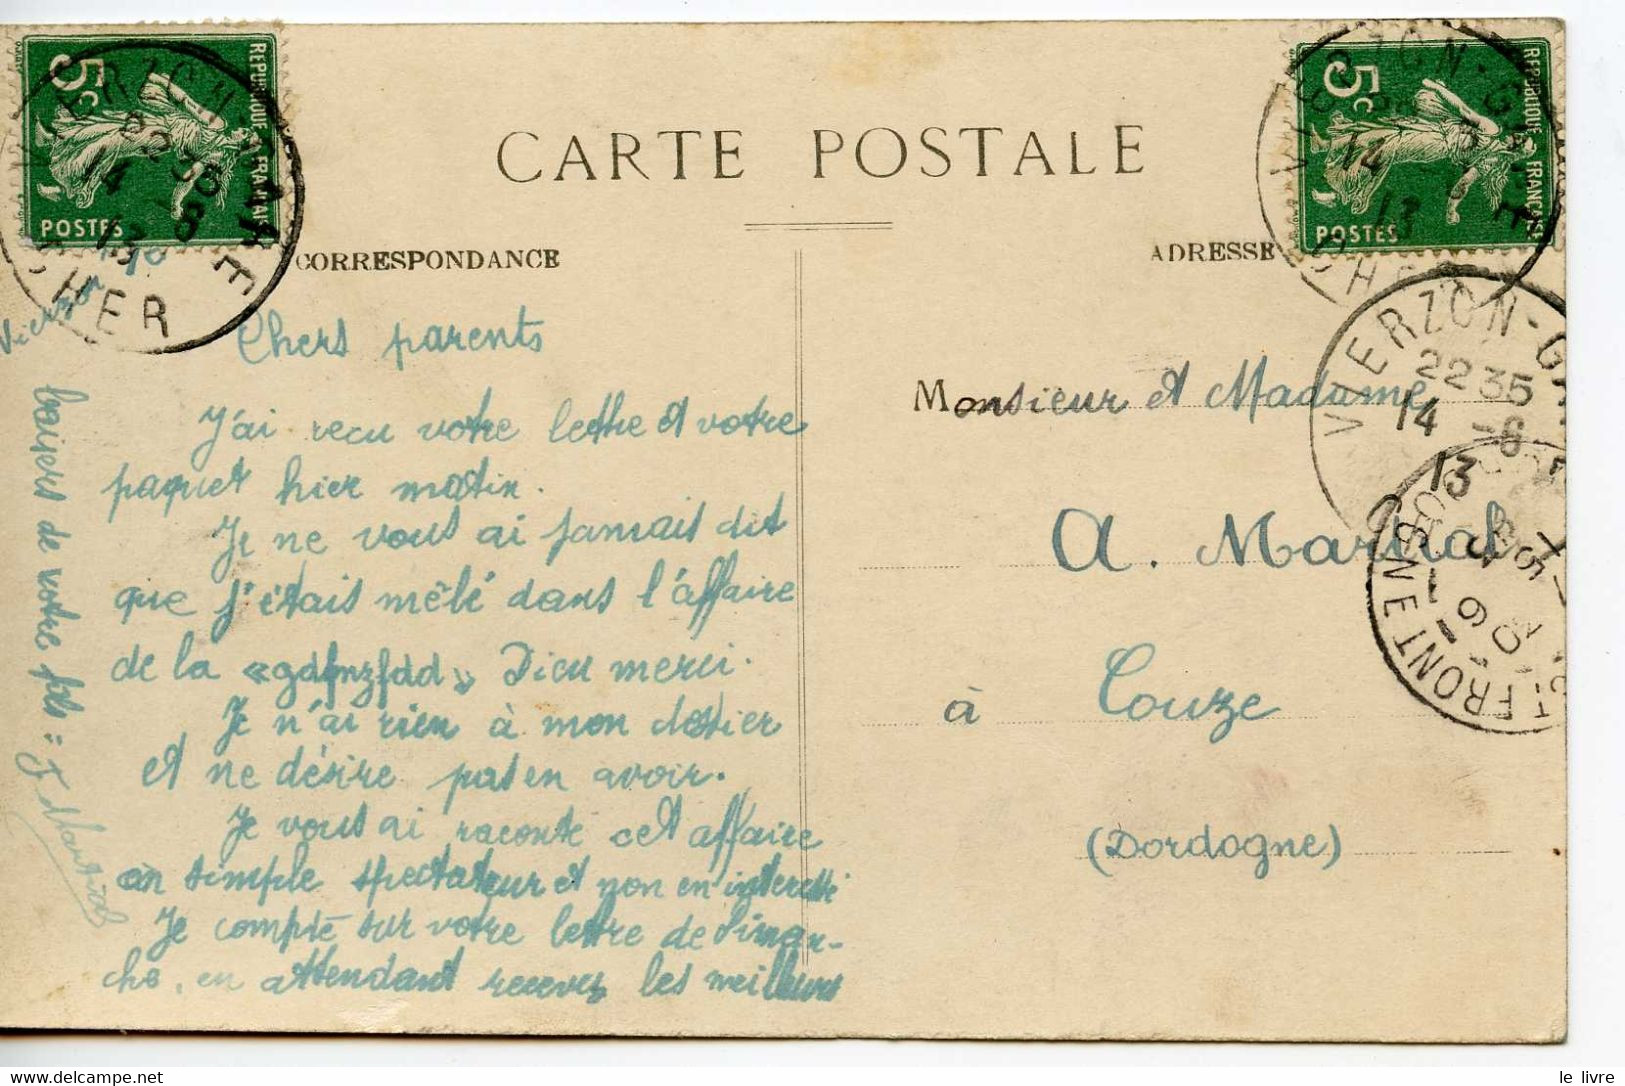 5c
REPUBLIQUE FRANÇAISE
POSTES
VIERZON-GARE
22 35
14 -6
13
CHER
5c
REPUBLIQUE FRANÇAISE
POSTES
CARTE POSTALE
CORRESPONDANCE
ADRESSE
Vierzon
Chers parents
J'ai recu votre lettre et votre
paquet hier matin.
Je ne vous ai jamais dit
que j'étais mêlé dans l'affaire
de la «gdfnzfdd» Dieu merci.
Je n'ai rien à mon dossier
et ne désire pas en avoir.
Je vous ai raconté cet affaire
en simple spectateur et non en interessé
Je compte sur votre lettre de Diman-
che, en attendant recevez les meilleurs
baisers de votre fils : J Martial
Monsieur et Madame
A. Martial
à Couze
(Dordogne)
VIERZON-GA
22 35
14 -6
13
FRONTENS
le livre